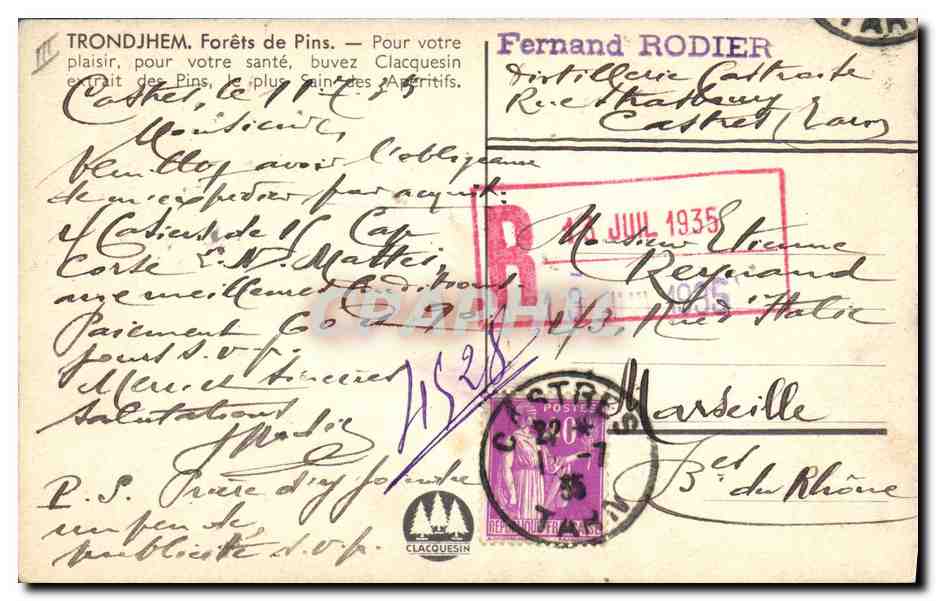 III
TRONDJHEM. Forêts de Pins. — Pour votre
plaisir, pour votre santé, buvez Clacquesin
extrait des Pins, le plus Sain des Apéritifs.
Castres, le 11-7-35
Monsieur,
Veuillez avoir l'obligeance
de m'expédier par acquit:
4 Casiers de 15 Cap
Corse L.N. Mattei,
aux meilleures Conditions
Paiement 60 à 90
jours s.v.p.
Merci et sincères
salutations
Rodier
P.S. Prière d'y joindre
un peu de
publicité s.v.p.
4528
CLACQUESIN
TARN
Fernand RODIER
Distillerie Castraise
Rue Strasbourg
Castres (Tarn)
R JUIL 1935
1935
Monsieur Etienne
Reynaud
43, Rue d'Italie
Marseille
Bes du Rhône
CASTRES
22 *
-7
35
TARN
POSTES
REPUBLIQUE FRANÇAISE
CPARAMA